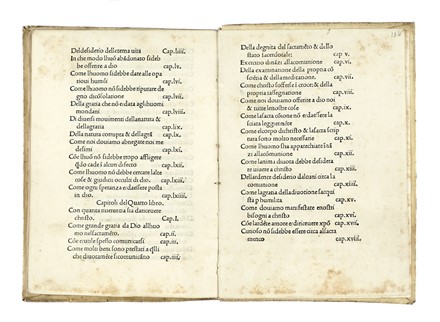 Deldesiderio della eterna uita cap.liiii.
In che modo lhuõ abãdonato si deb
be offerire a dio cap.lv.
Come lhuomo nõ sidebbe dare alle opa
tioni humili cap.lvi.
Come lhuomo nõ sidebbe riputare de
gno dicõsolatione cap.lvii.
Della gratia che nõ e data aglihuomi
mondani cap.lviii.
Di diuersi mouimenti dellanatura &
dellagratia cap.lix.
Della natura corrupta & dellagrã cap.lx.
Come noi douiamo abnegare noi me
desimi cap.lxi.
Cõe lhuõ nõ sidebbe tropo affligere
qñdo cade ĩ alcun difecto cap.lxii.
Come lhuomo nõ sidebbe cercare lalte
cose & giudicii occulti di dio. cap.lxiii.
Come ogni speranza e dauere posta
in dio. cap.lxiiii.
Capitoli del Quarto libro.
Con quanta reuerentia sia da riceuere
christo. Cap.I.
Come grande gratia da Dio allhuo
mo nelsacramẽto. cap.ii.
Cõe e utile spesso comunicarsi cap.iii.
Come molti beni sono prestati a q̃lli
che diuotamẽte si comunicano cap.iiii.
Della degnita del sacramẽto & dello
stato sacerdotale: cap v.
Exercitio dinãzi allacomunione cap.vi.
Della examinatione della propria cõ
sciẽtia & della medatione. cap.vii.
Come christo sofferse ĩ croce: & della
propria rassegnatione cap.viii.
Come noi douiamo offerire a dio noi
& tutte lenostre cose cap.ix.
Come lasacra cõione nõ e dassere la
sciata leggiermẽte cap.x.
Come el corpo dichristo & lasacra scrip
tura sono molto necessarii cap.xi.
Come lhuomo sha apparecchiare ĩnã
zi allacomunione cap.xii.
Come lanima diuota debbe desidera
re unirsi a christo cap.xiii.
Dellardente desiderio dalcuni circa la
comunione cap.xiiii.
Come lagratia della diuotione sacqui
sta p humilta cap.xv.
Come douiamo manifestare enostri
bisogni a christo cap.xvi.
Cõe lardẽte amore e diriceuere xp̃o cap.xvii.
Curioso nõ sidebbe essere circa alsacra
mento cap.xviii.